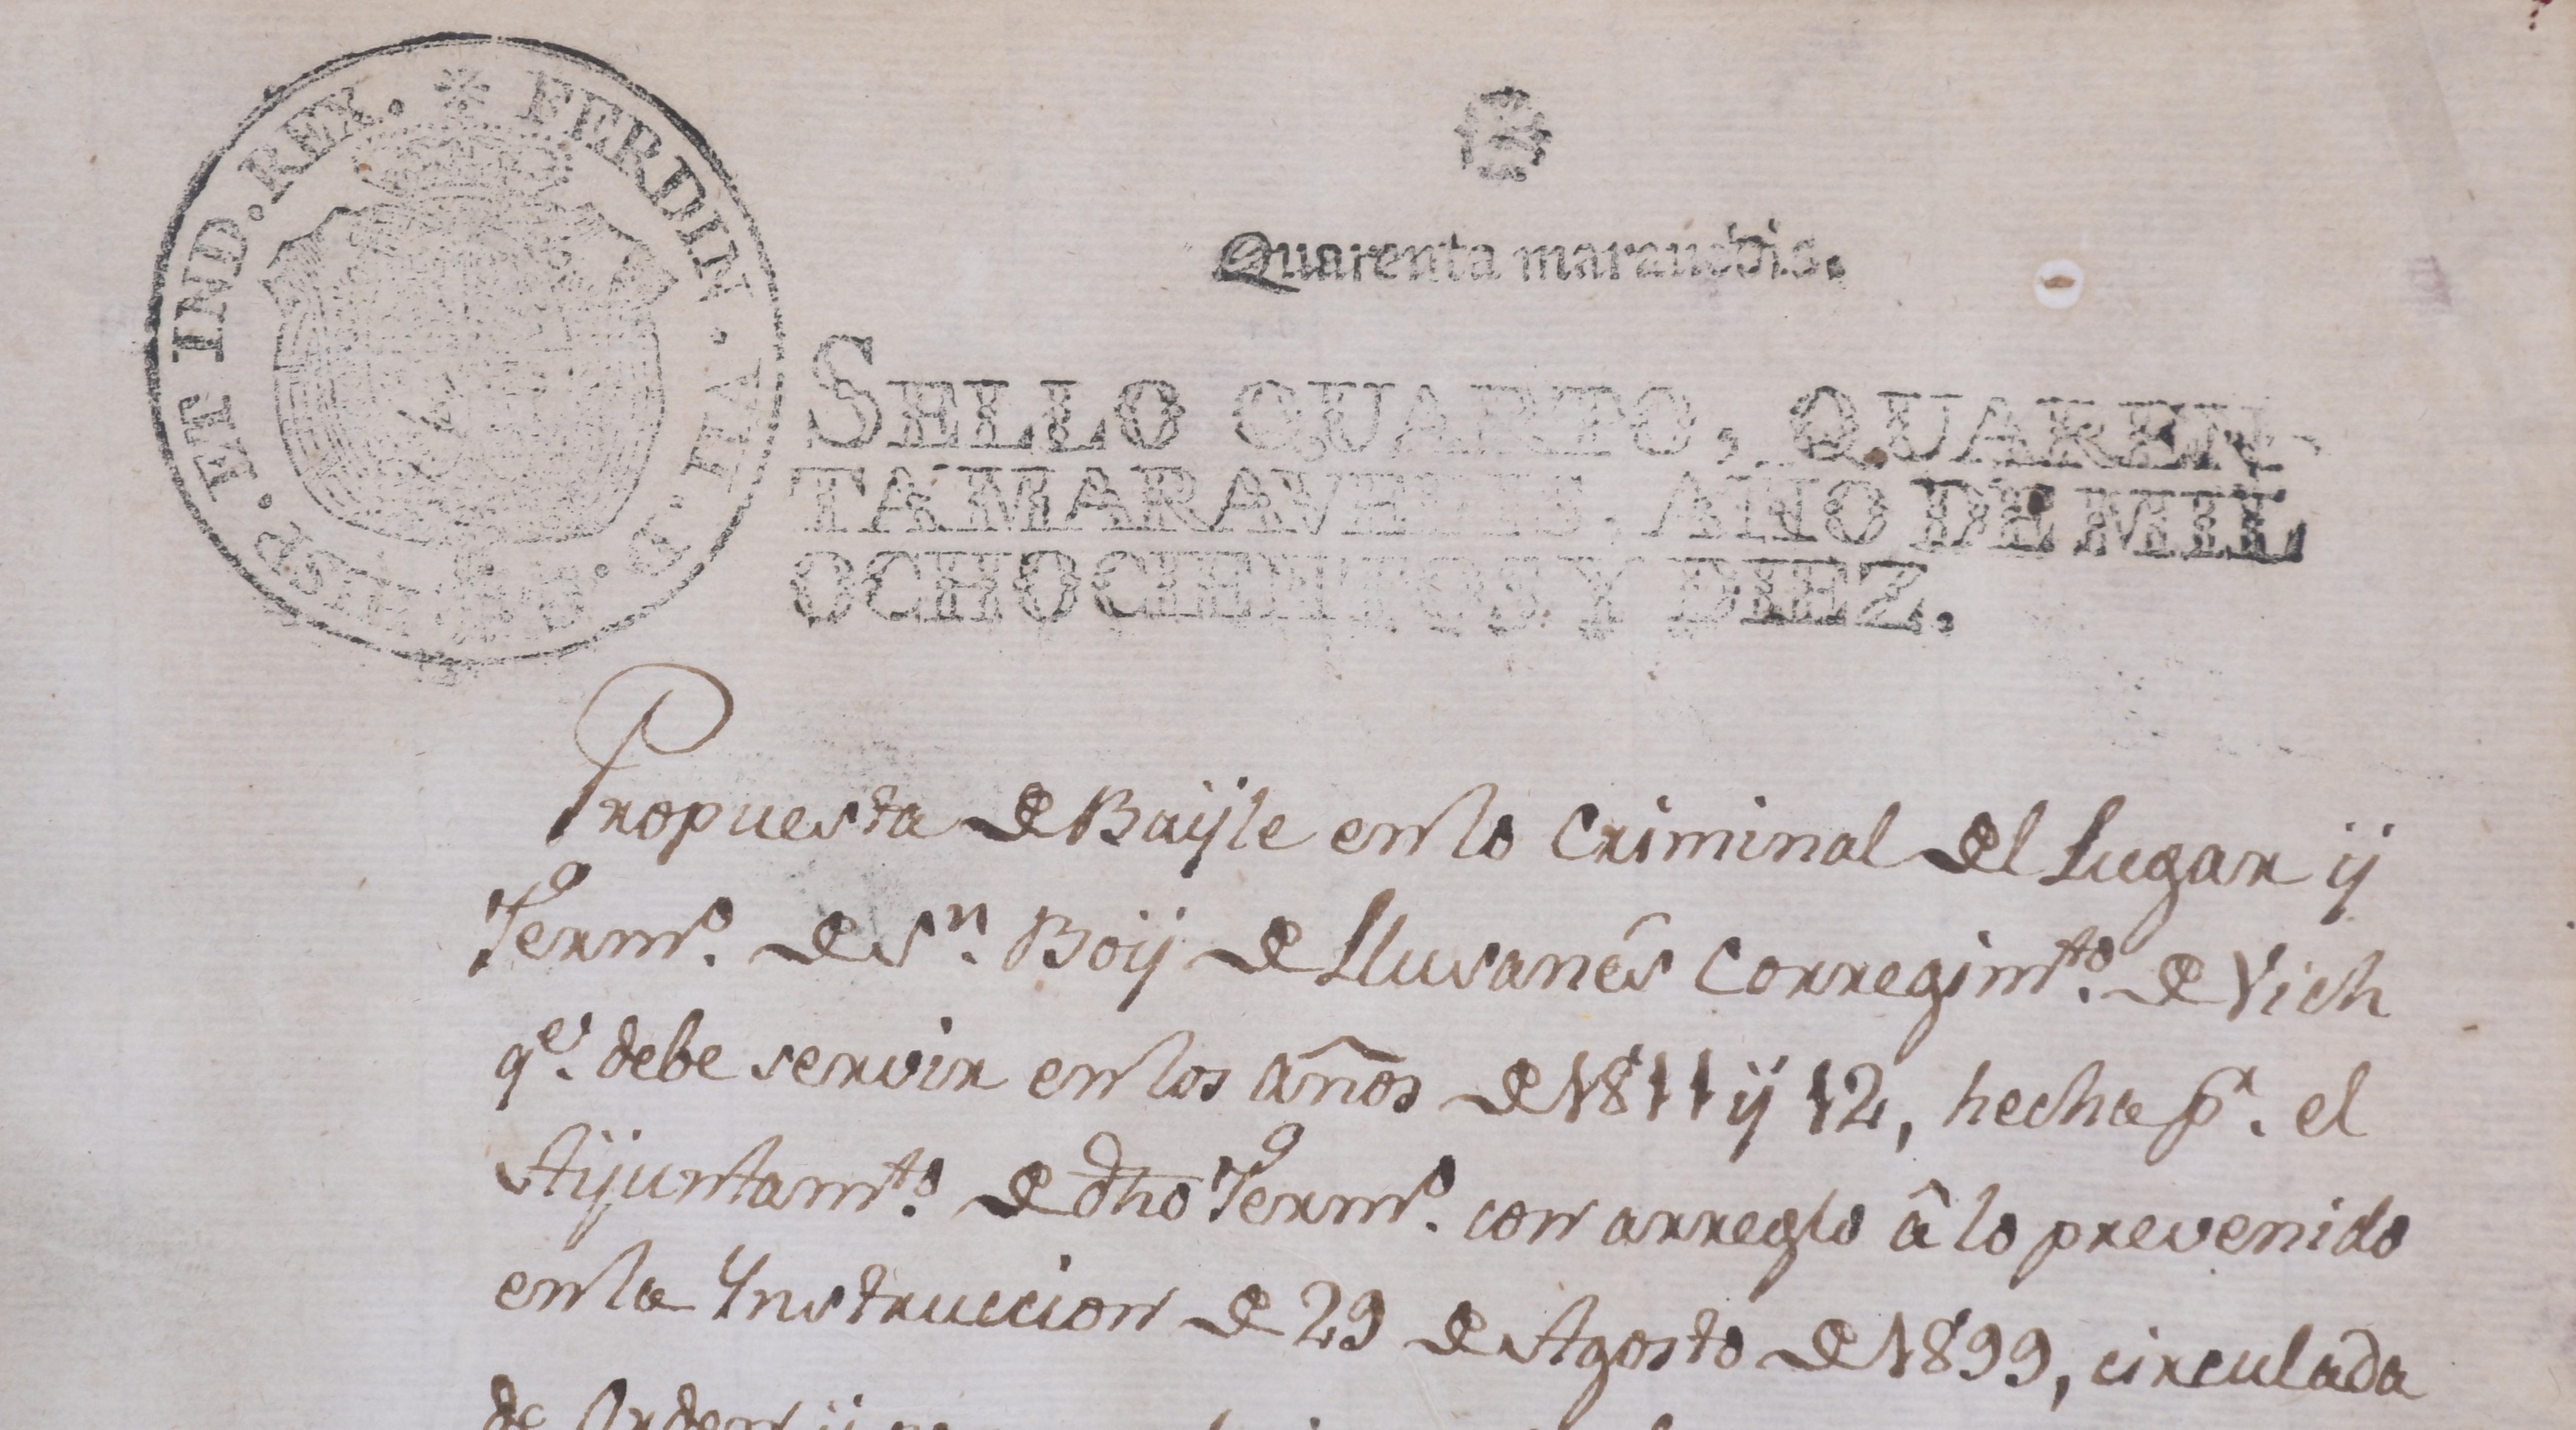 FERDIN. VII. D. G. HISP. ET IND. REX.
Quarenta marauedis.
SELLO QUARTO, QUAREN-
TA MARAVEDIS, AÑO DE MIL
OCHOCIENTOS Y DIEZ.
Propuesta de Bayle en lo Criminal del Lugar ÿ
Termº. de Sn. Boÿ de Llusanés Corregimto. de Vich
qe. debe servir en los años de 1811 ÿ 12, hecha pr. el
Aÿuntamto. de dho Termº. con arreglo â lo prevenido
en la Ynstruccion de 29 de Agosto de 1899, circulada
de Orden ÿ